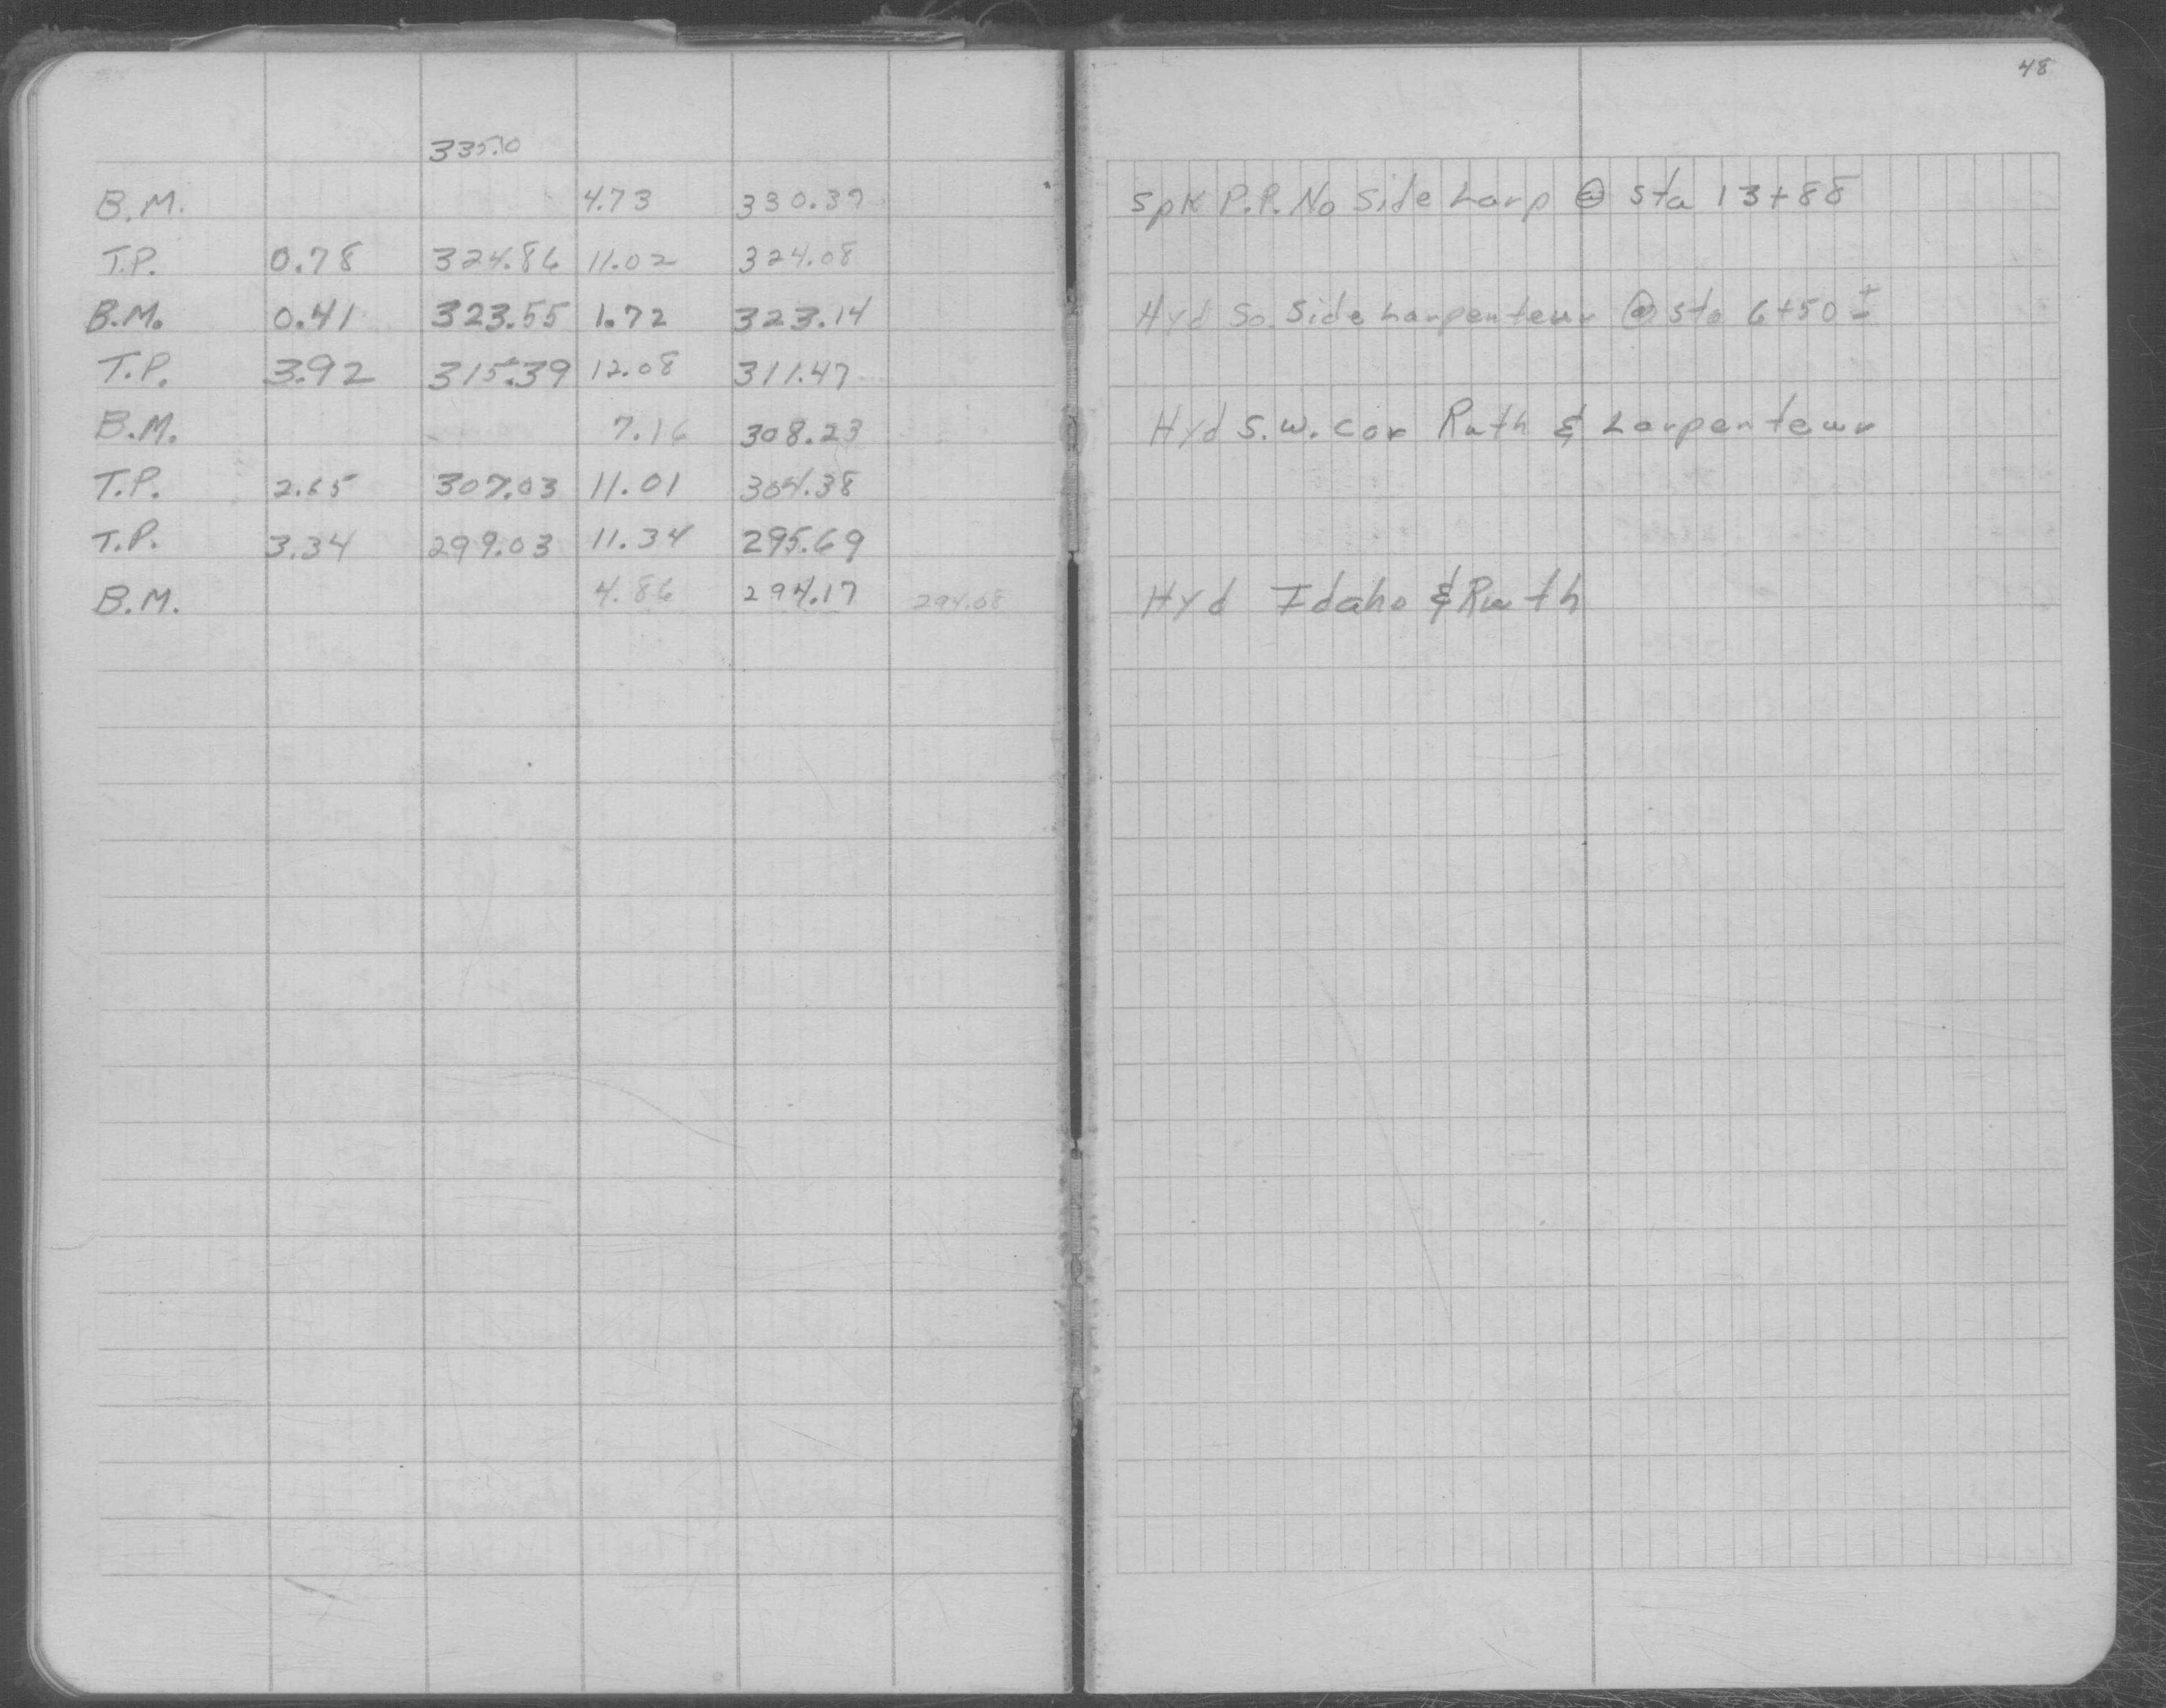 48
335.10
B.M. 4.73 330.37 Spk P.P. No Side Larp @ Sta 13+88
T.P. 0.78 324.86 11.02 324.08
B.M. 0.41 323.55 1.72 323.14 Hyd So. Side Larpenteur @ Sta 6+50 ±
T.P. 3.92 315.39 12.08 311.47
B.M. 7.16 308.23 Hyd S.W. Cor Ruth & Larpenteur
T.P. 2.65 307.03 11.01 304.38
T.P. 3.34 299.03 11.34 295.69
B.M. 4.86 294.17 294.08 Hyd Idaho & Ruth